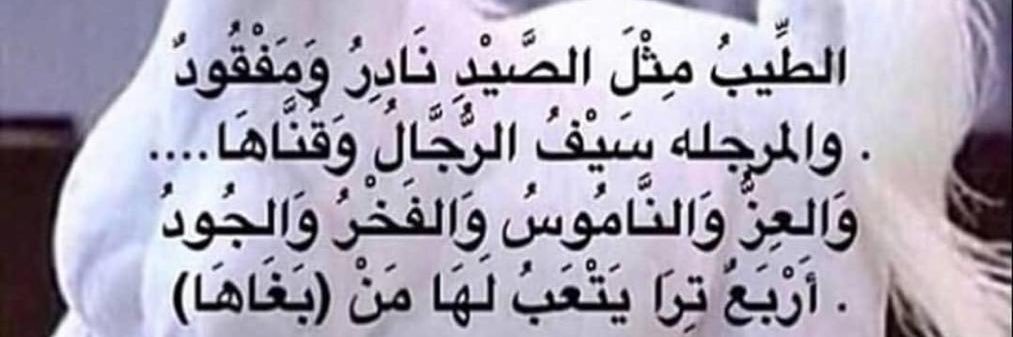 الطِّيبُ مِثْلَ الصَّيْدِ نَادِرُ وَمَفْقُودٌ
. والمرجله سَيْفُ الرُّجَّالُ وَقُنَّاهَا....
وَالعِزُّ وَالنَّامُوسُ وَالفَخْرُ وَالجُودُ
. أَرْبَعٌ تِرَا يَتْعَبُ لَهَا مَنْ (بَغَاهَا)